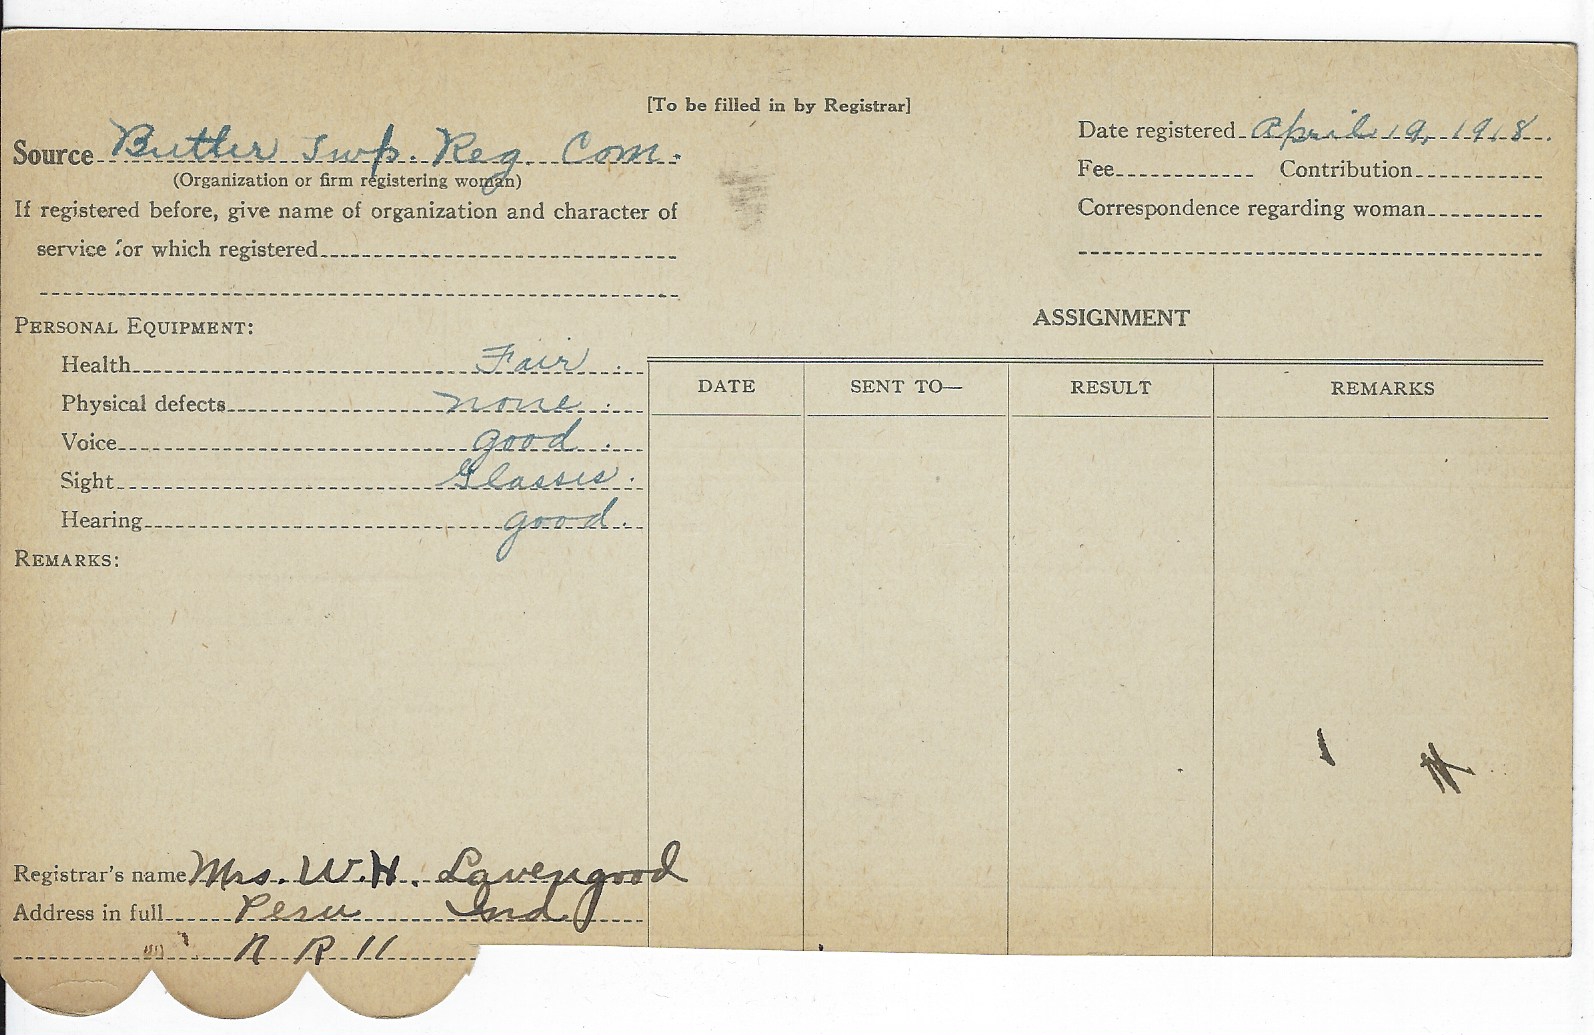 [To be filled in by Registrar]
Source Butler Twp. Reg. Com.
(Organization or firm registering woman)
If registered before, give name of organization and character of
service for which registered
Date registered April 19, 1918.
Fee Contribution
Correspondence regarding woman
PERSONAL EQUIPMENT:
Health Fair.
Physical defects none.
Voice good.
Sight Glasses.
Hearing good.
REMARKS:
ASSIGNMENT
DATE SENT TO— RESULT REMARKS
Registrar's name Mrs. W. H. Lavengood
Address in full Peru Ind
R R 11